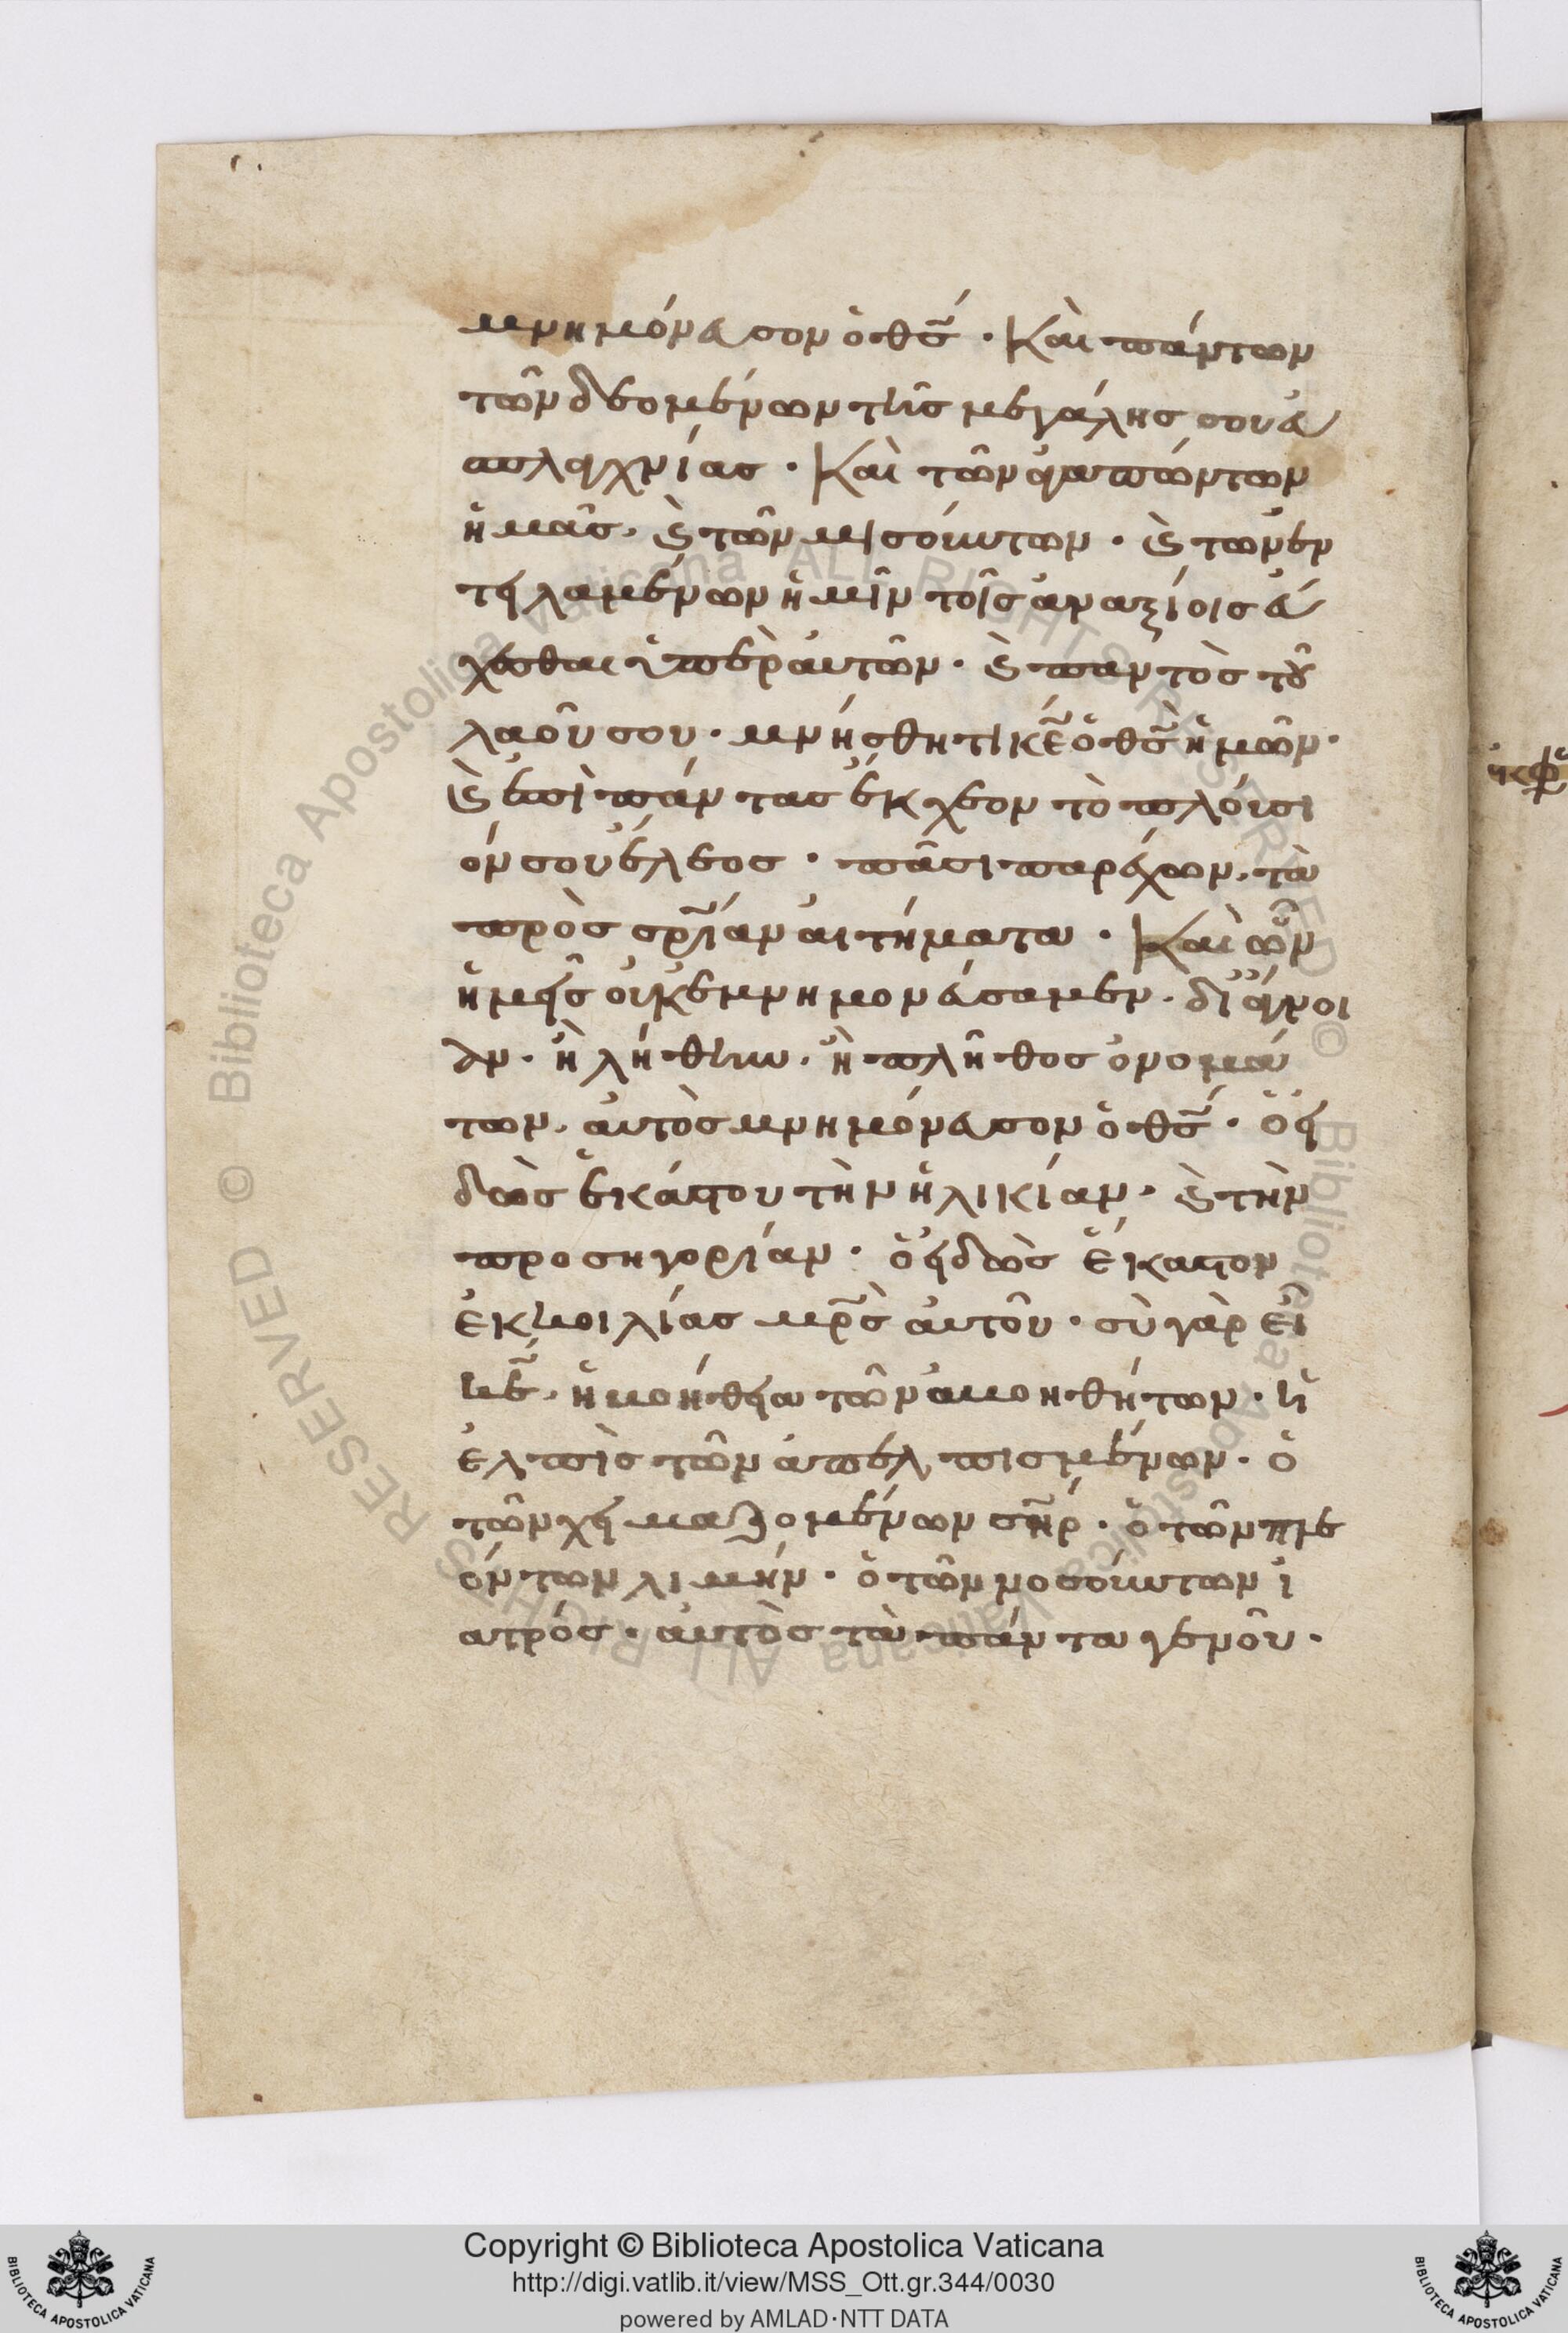 μνημόνευσον ὁ θς· Καὶ πάντων
τῶν δεομένων τῆς μεγάλης σου εὐ
σπλαχνίας· Καὶ τῶν ἀγαπώντων
ἡμᾶς· καὶ τῶν μισούντων· καὶ τῶν ἐν
τειλαμένων ἡμῖν τοῖς ἀναξίοις εὔ
χεσθαι ὑπὲρ αὐτῶν· καὶ παντὸς τοῦ
λαοῦ σου· μνήσθητι κε ὁ θς ἡμῶν·
καὶ ἐπὶ πάντας ἔκχεον τὸ πλούσι
όν σου ἔλεος· πᾶσι παρέχων τὰ
πρὸς σρίαν αἰτήματα· Καὶ ὧν
ἡμεῖς οὐκ ἐμνημονεύσαμεν· δι' ἄγνοι
αν· ἢ λήθην· ἢ πλῆθος ὀνομά
των· αὐτὸς μνημόνευσον ὁ θς· ὁ εἰ
δὼς ἑκάστου τὴν ἡλικίαν· καὶ τὴν
προσηγορίαν· ὁ εἰδὼς ἕκαστον
ἐκ κοιλίας μρς αὐτοῦ· σὺ γὰρ εἶ
κε· ἡ βοήθεια τῶν ἀβοηθήτων· ἡ
ἐλπὶς τῶν ἀπελπισμένων· ὁ
τῶν χειμαζομένων σηρ· ὁ τῶν πλε
όντων λιμήν· ὁ τῶν νοσούντων ἰ
ατρός· αὐτὸς τὰ πάντα γενοῦ·
Copyright © Biblioteca Apostolica Vaticana
http://digi.vatlib.it/view/MSS_Ott.gr.344/0030
powered by AMLAD·NTT DATA
© Biblioteca Apostolica Vaticana ALL RIGHTS RESERVED
© Biblioteca Apostolica Vaticana ALL RIGHTS RESERVED
BIBLIOTECA APOSTOLICA VATICANA
BIBLIOTECA APOSTOLICA VATICANA